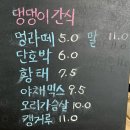 댕댕이간식
멍라떼 5.0 말 11.0
단호박 6.0
황태 7.5
야채믹스 9.5
오리가슴살 10.0
캥거루 11.0